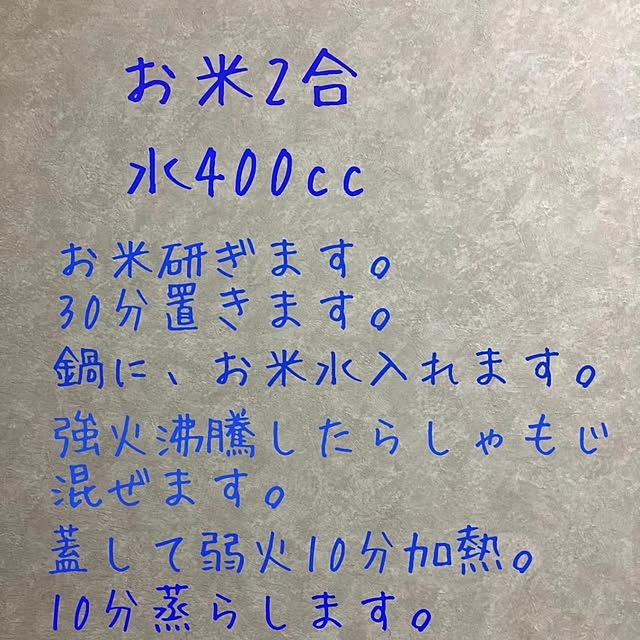 お米2合
水400cc
お米研ぎます。
30分置きます。
鍋に、お米水入れます。
強火沸騰したらしゃもじ
混ぜます。
蓋して弱火10分加熱。
10分蒸らします。